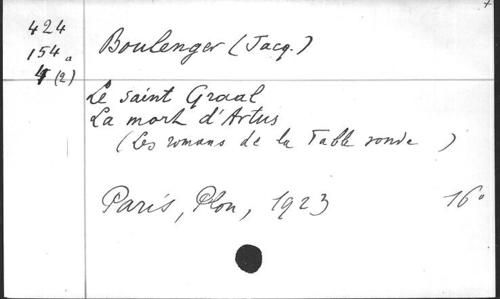 424
154a
4 (2)
Boulenger (Jacq.)
Le saint Graal
La mort d'Artus
(Les romans de la Table ronde )
Paris, Plon, 1923 16°